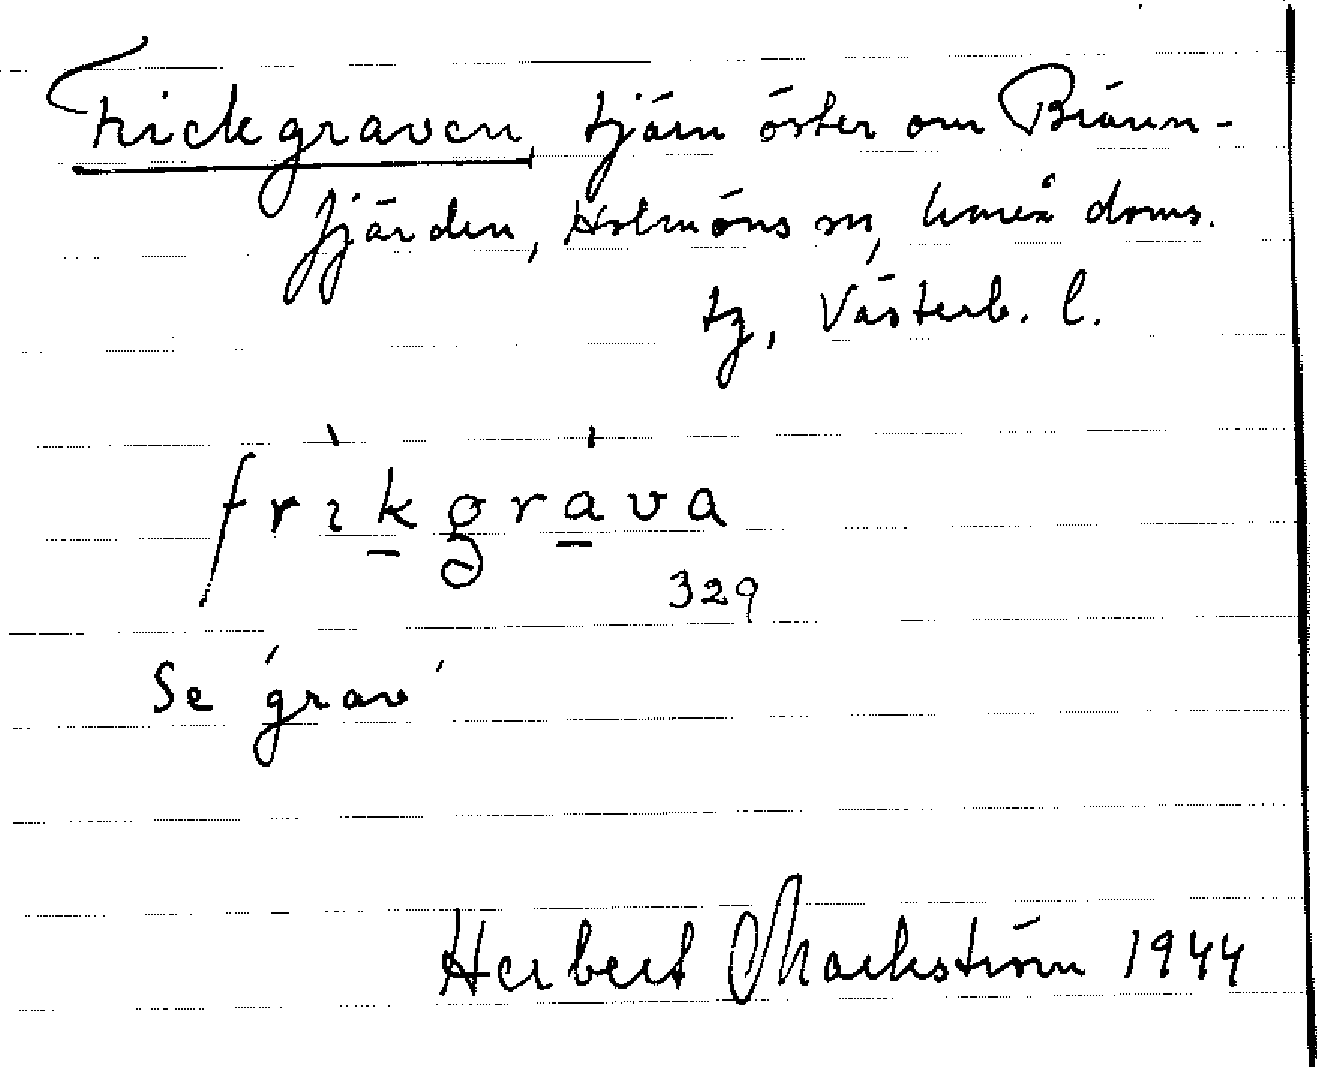 Frickgraven, tjärn öster om Brännfjärden, Holmöns sn, Umeå doms.
tg, Västerb. l.
frikgrava
329
Se 'grav'
Herbert Markström 1944